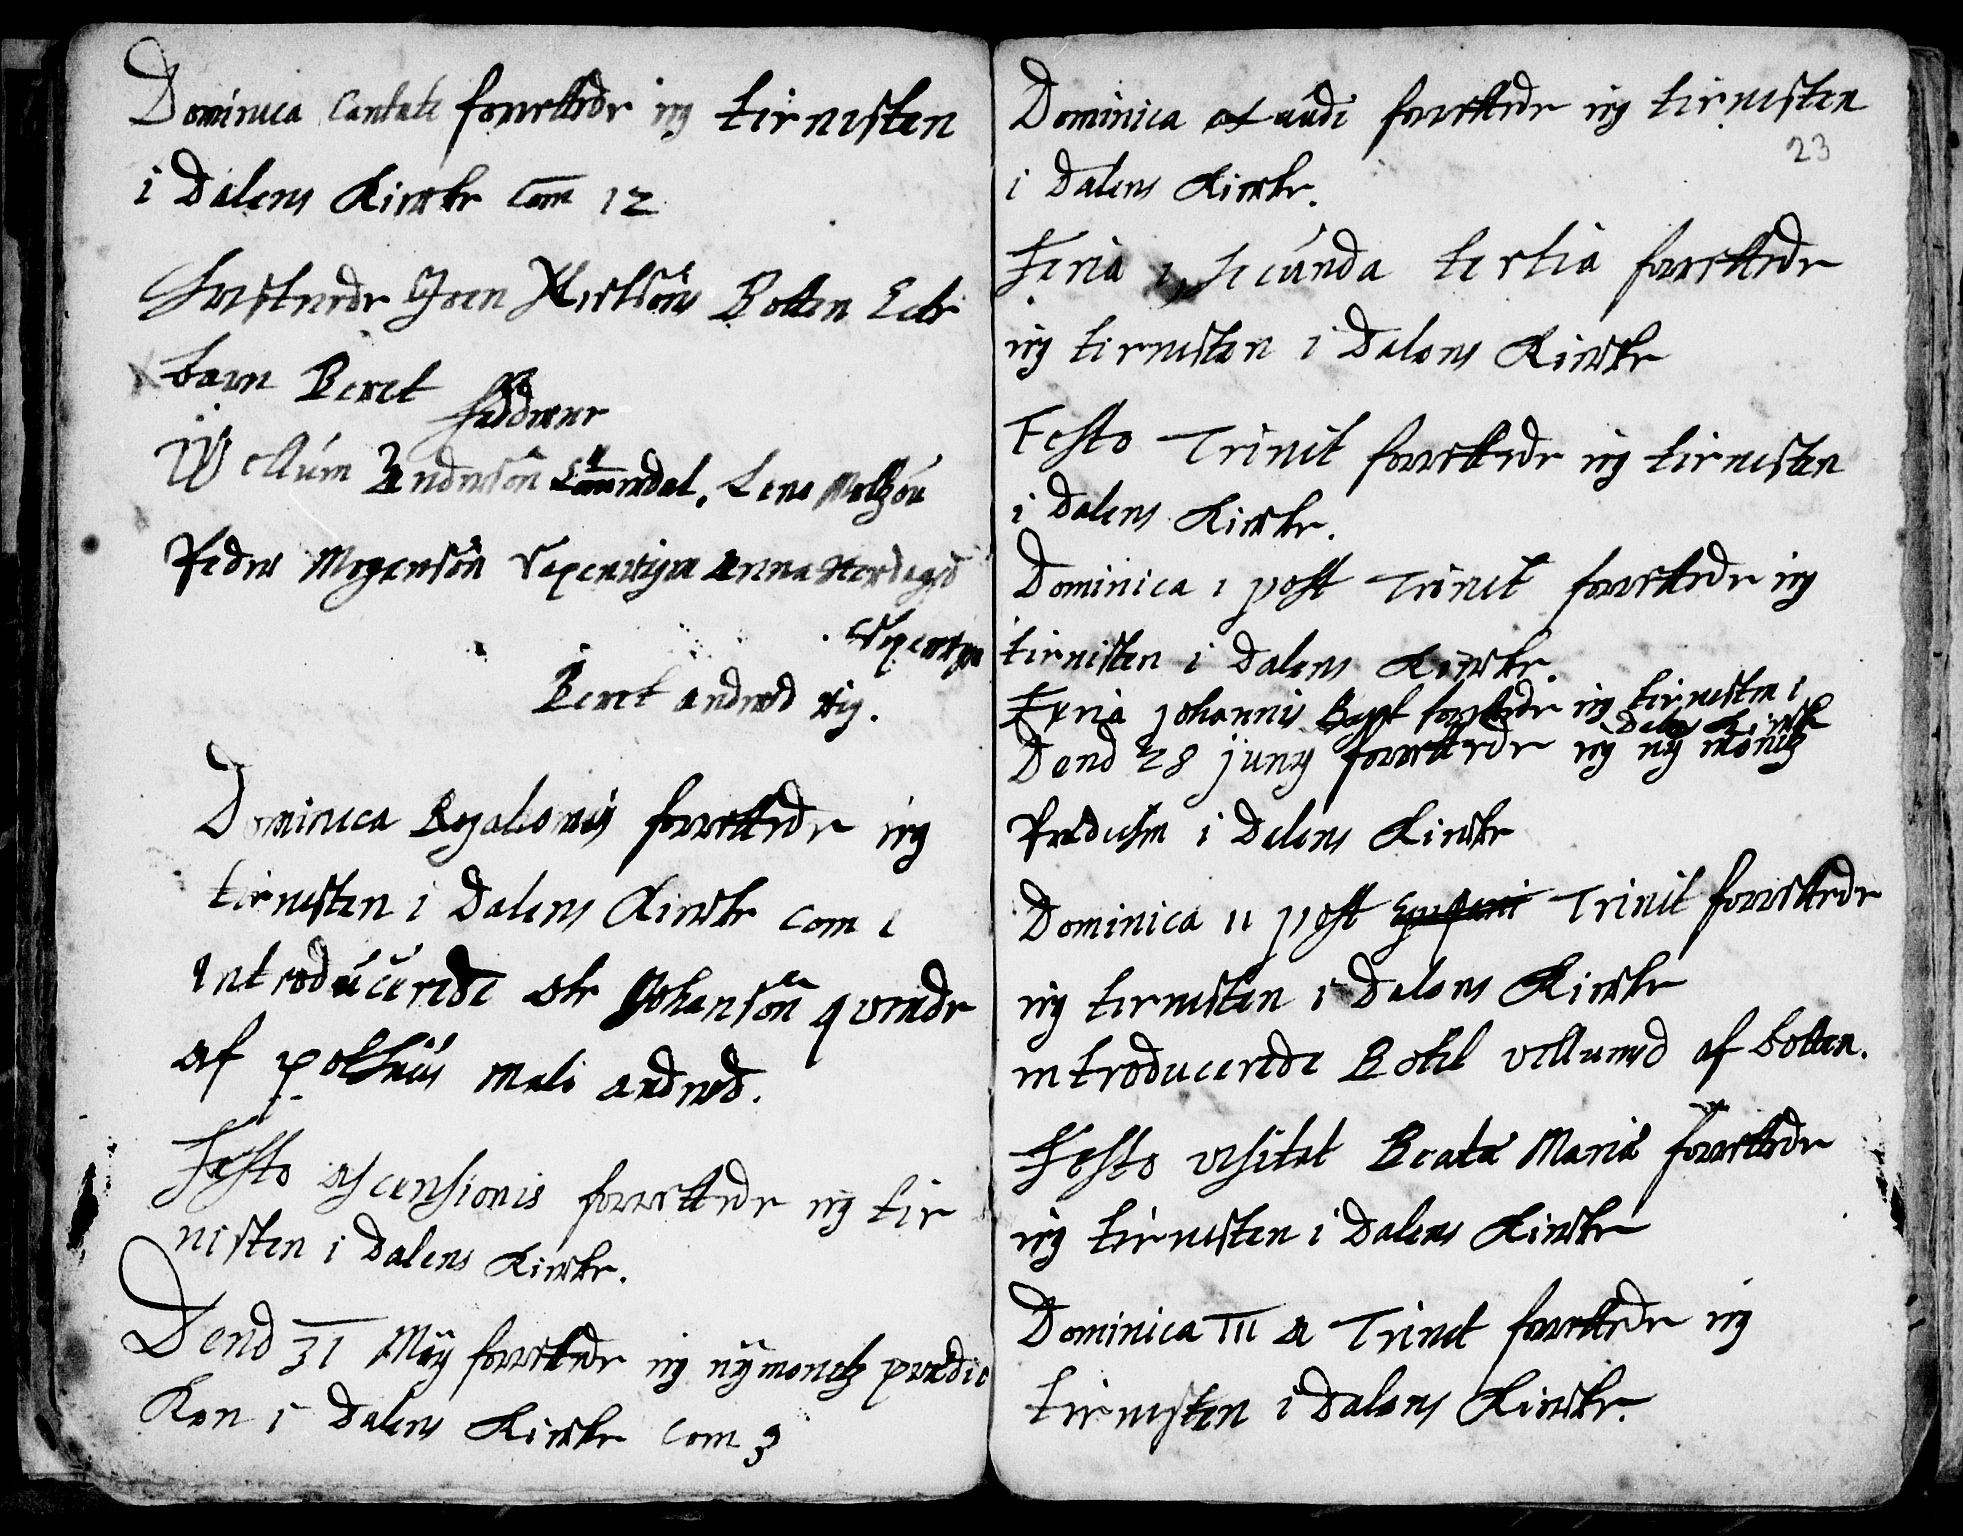 Dominica Cantate forrettede ieg tienisten
i Dalens Kircke Com 12
Christnede Joen Nielsöns Botten Ecte
barn Beret
Faddrene
Willum Andersön Lene
Peder Mogensön Anna
Beret andersd ibg.
Dominica Rogationis forrettede ieg
tienisten i Dalens Kircke com 1
Introducerede Ole Johansön quinde
af Polhus Mali andersd.
Festo ascensionis forrettede ieg tie
nisten i Dalens Kircke.
Dend 31 Maij forrettede ieg nÿmonetz prædic
Ken i Dalens Kircke Com 3
Dominica exaudi forrettede ieg tienisten
23
i Dalens Kircke.
Feria 1, secunda tertia forrettede
ieg tienisten i Dalens Kircke
Festo Trinit forrettede ieg tienisten
i Dalens Kircke.
Dominica 1 post Trinit forrettede ieg
tienisten i Dalens Kircke.
Feria Johannis Bapt forrettede ieg tienisten i
Dalens Kircke
Dend 28 junij forrettede ieg nÿ monitz
Prædicken i Dalens Kircke
Dominica 11 post Trinit forrettede
ieg tienisten i Dalens Kircke
introducerede Botil villumsd af botten.
Festo visitat Beatæ Mariæ forrettede
ieg tienisten i Dalens Kircke
Dominica III a Trinit forrettede ieg
tienisten i Dalens Kircke.